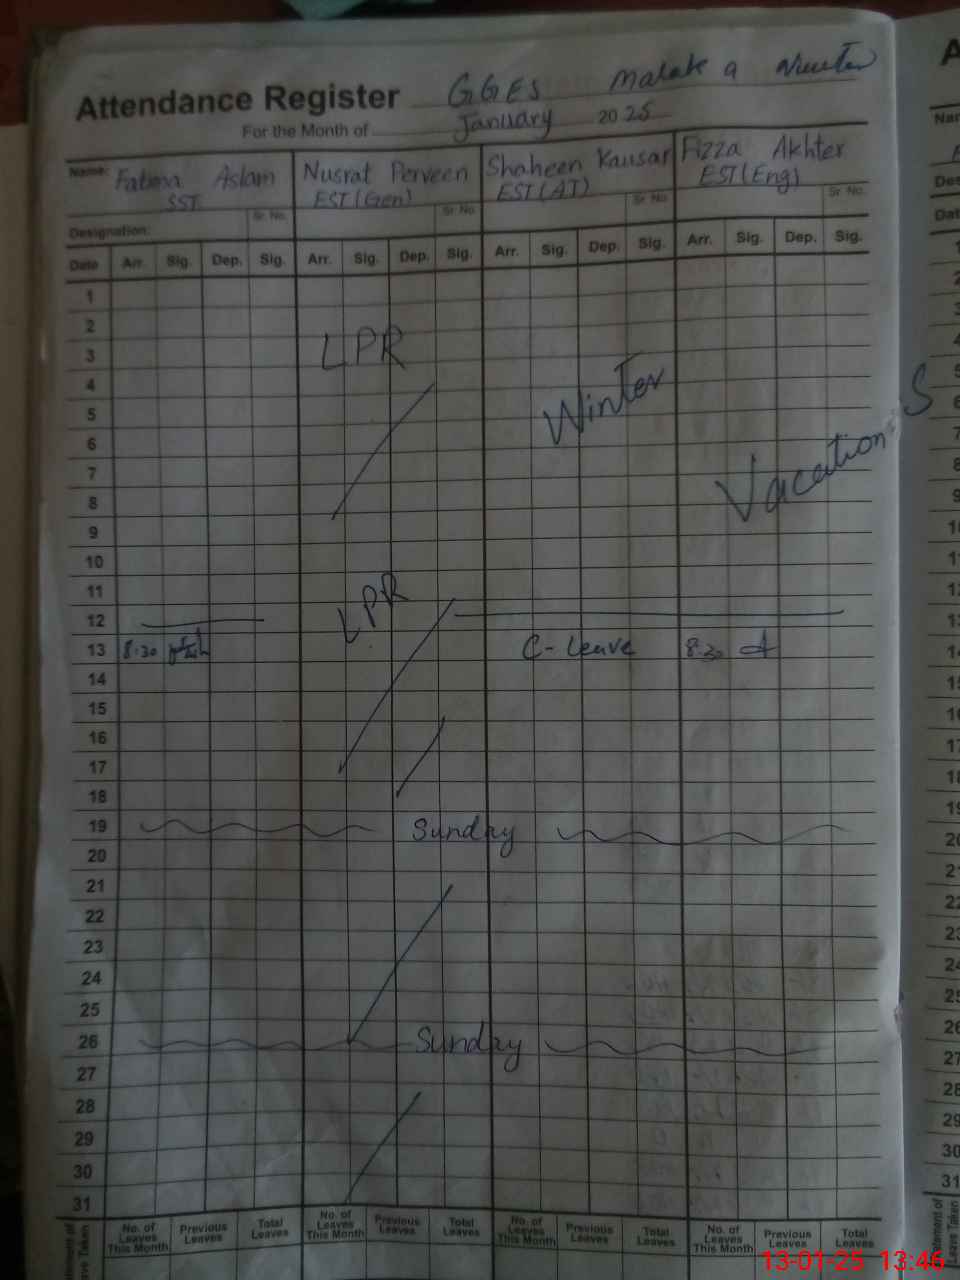 Attendance Register GGES Malak a
For the Month of January 2025
Name: Fatima Aslam Nusrat Perveen Shaheen Kausar Fizza Akhter
SST EST(Gen) EST(AT) EST(Eng)
Designation: Sr. No. Sr. No. Sr. No. Sr. No.
Date Arr. Sig. Dep. Sig. Arr. Sig. Dep. Sig. Arr. Sig. Dep. Sig. Arr. Sig. Dep. Sig.
1
2
3 LPR
4
5 Winter
6
7 Vacations
8
9
10
11
12 LPR
13 8:30 C-Leave 8:30
14
15
16
17
18
19 Sunday
20
21
22
23
24
25
26 Sunday
27
28
29
30
31
No. of Leaves This Month Previous Leaves Total Leaves No. of Leaves This Month Previous Leaves Total Leaves No. of Leaves This Month Previous Leaves Total Leaves No. of Leaves This Month Previous Leaves Total Leaves
13-01-25 13:46